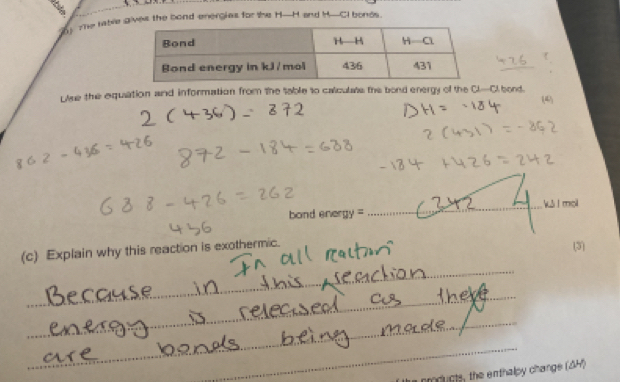 The table gives the bond energies for the H—H and H—Cl bonds.
Bond H—H H—Cl
Bond energy in kJ/mol 436 431
426 ?
Use the equation and information from the table to calculate the bond energy of the Cl—Cl bond.
(4)
2 (436) = 872 DH = -184
862 - 436 = 426 872 - 184 = 688 2 (431) = -862
-184 + 426 = 242
688 - 426 = 262
436
bond energy = 242 kJ / mol
4
(c) Explain why this reaction is exothermic.
(3)
In all reaction
Because in this reaction
energy is released as there
are bonds being made
products, the enthalpy change (ΔH)